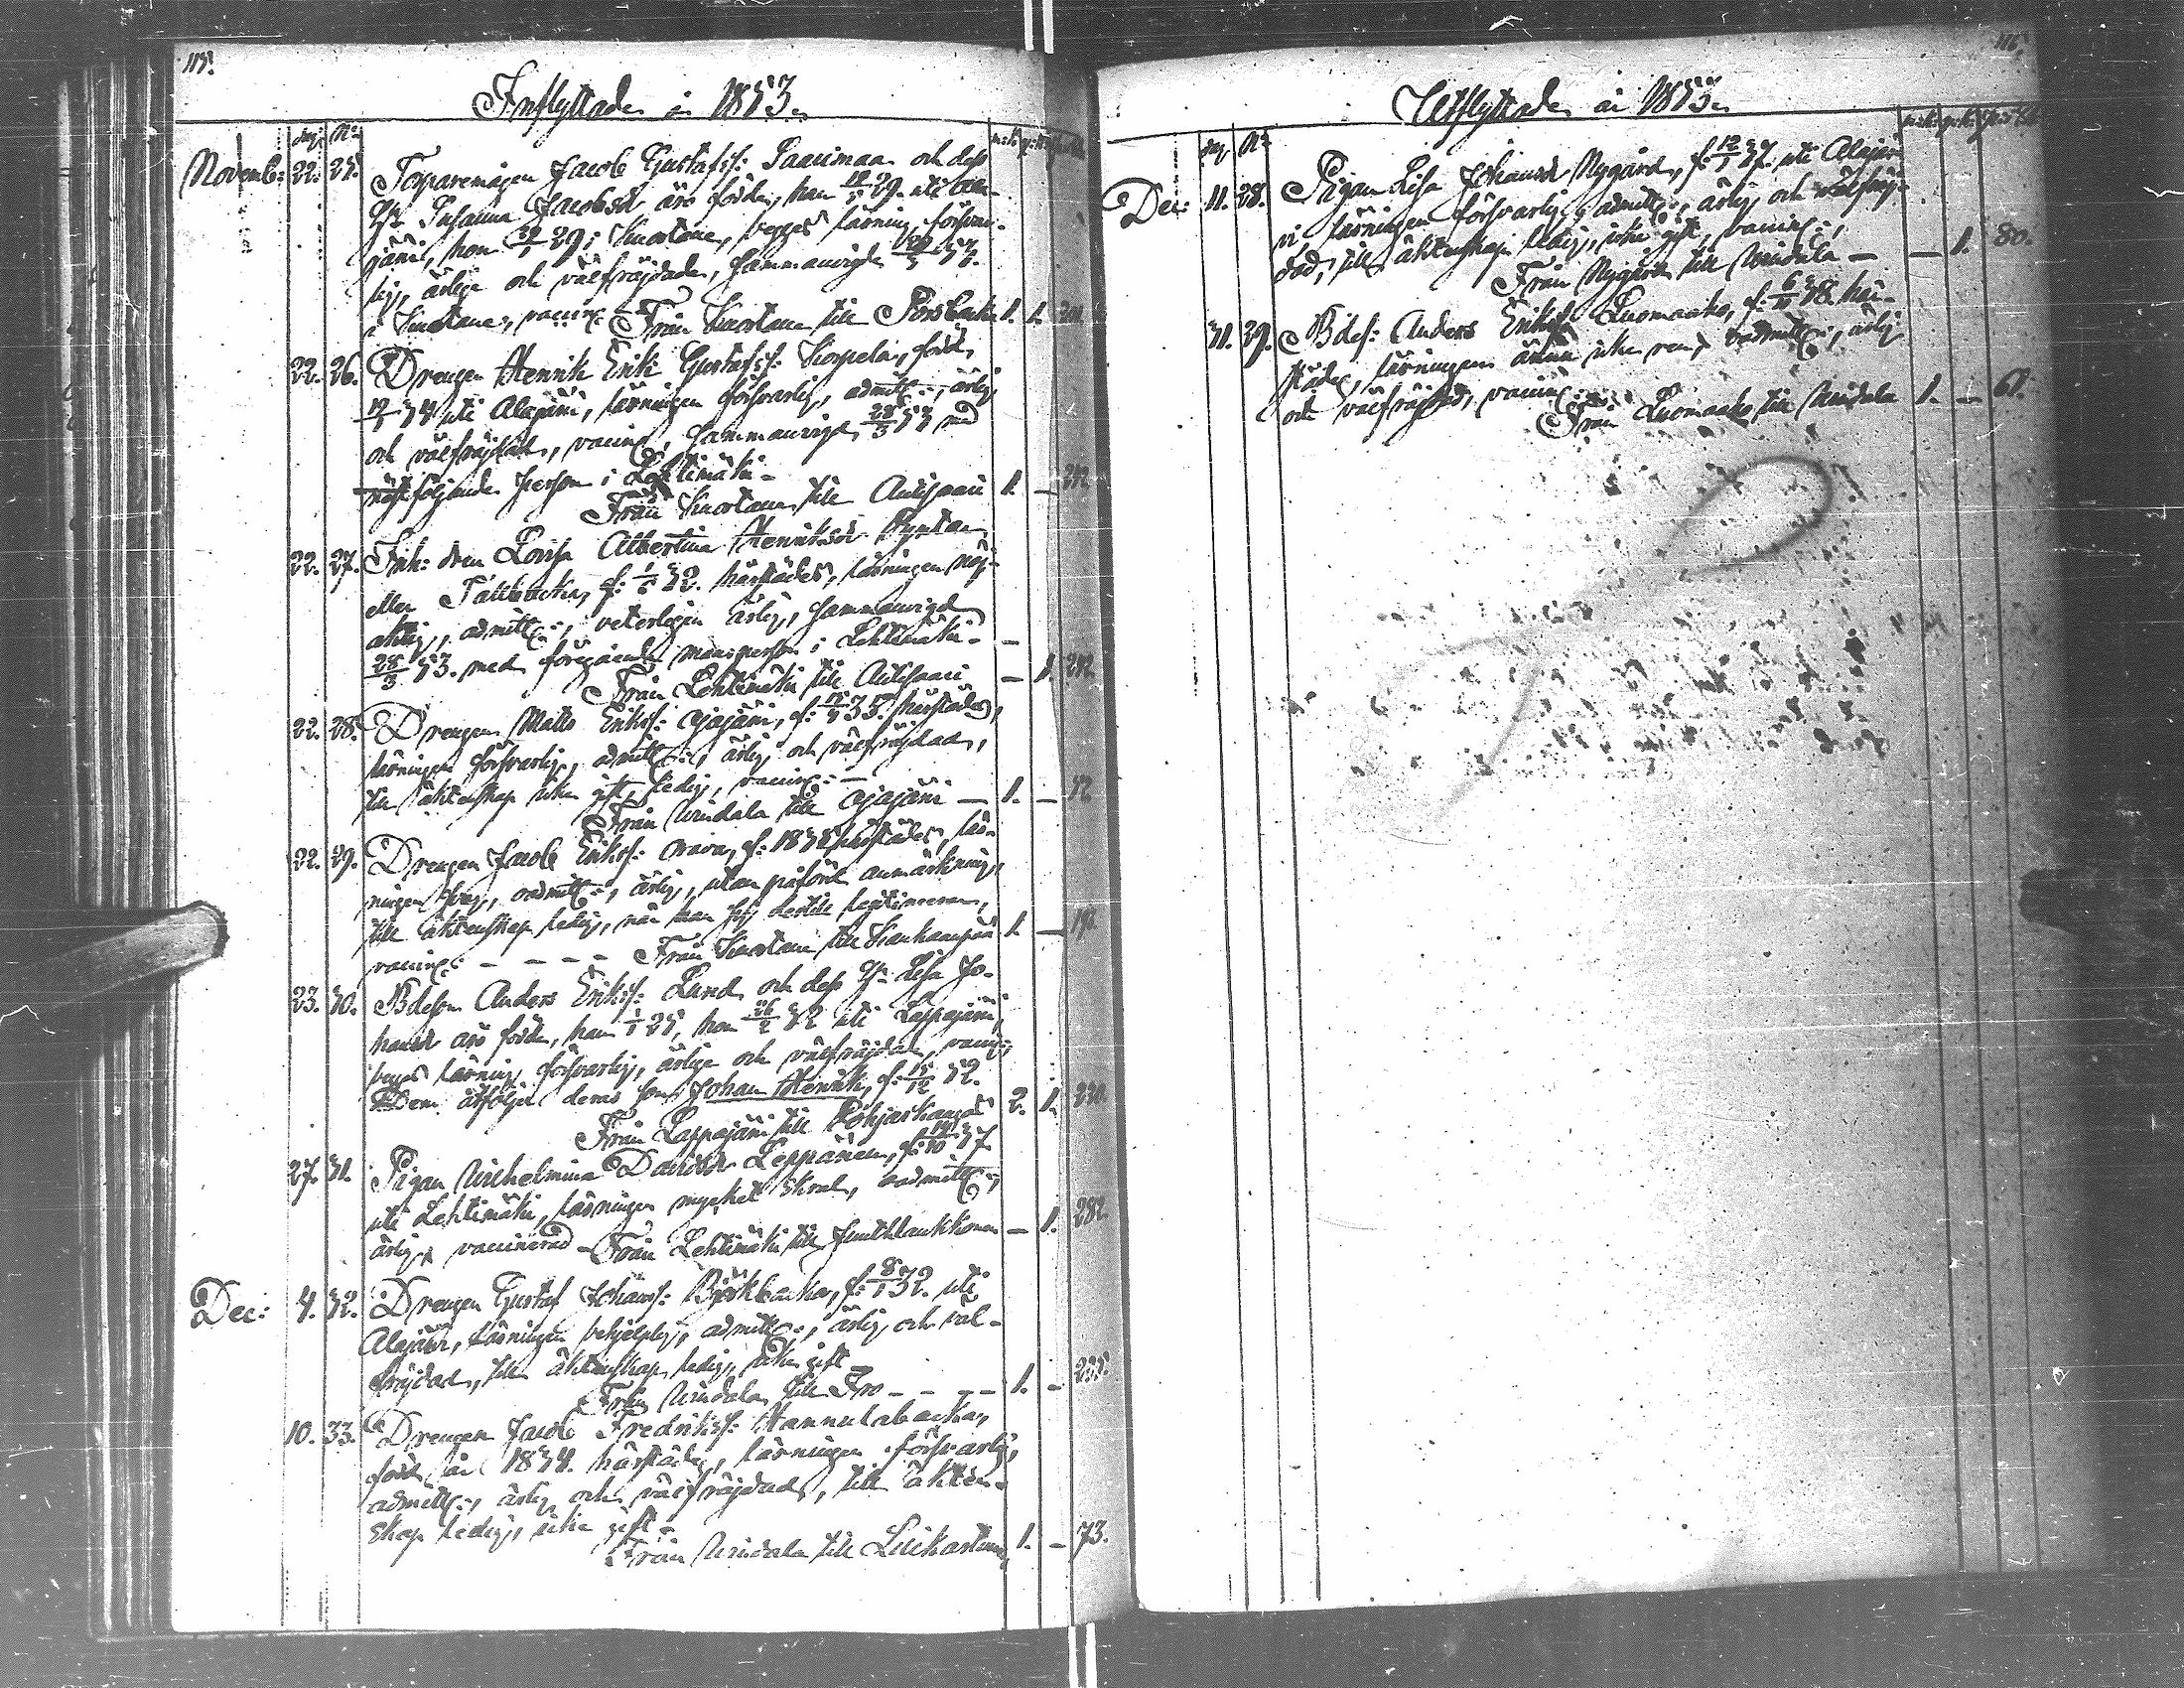 115.
Inflyttade år 1853.
dag. No
m:k: q:k: pag:
Novemb: 22. 25. Torparemågen Jacob Gustafss: Saarimaa och dess
H:u Susanna Jacobsdr äro födde, han 29. uti Ala-
järvi, hon 29 i Kuortane, begges läsning försvar-
lig, ärlige och välfräjdade, sammanvigde 53.
i Kuortane, vaccin:
Från Kuortane till Porsbacka 1. 1.
22. 26. Drengen Henrik Erik Gustafss: Korpela, född
34 uti Alajärvi, läsningen försvarlig, admitt:, ärlig
och välfräjdad, vaccin:, sammanvigd 28/3 53 med
nästföljande person i Lehtimäki -
Från Kuortane till Antisaari 1. - 242
22. 27. Lovisa Albertina Henriksdr
eller f: 32. härstädes, läsningen nöj-
aktig, admitt:, veterligen ärlig, sammanvigd
28/3 53. med föregående mansperson i Lehtimäki -
Från Lehtimäki till Antisaari - 1. 242
22. 28. Drengen Matts Erikss: Ojajärvi, f: 35. härstädes,
läsningen försvarlig, admitt:, ärlig och välfräjdad,
till äktenskap icke gift, ledig, vaccin: -
Från Vindala till Ojajärvi - 1. - 42
22. 29. Drengen Jacob Erikss: Orava, f: härstädes, läs-
ningen svag, oadmitt:, ärlig, utan påförd anmärkning,
till äktenskap ledig, när han sig dertill legitimerar,
vaccin: - - - - Från Kuortane till Kauhanpää 1. -
23. 30. Bdeson Anders Erikss: Lund och dess H:u Lisa Jo-
hansdr äro födde, han 1/1 25, hon 26/2 32 uti Lappajärvi,
beges läsning försvarlig, ärlige och välfräjdade, vaccin:,
Dem åtföljer deras son Johan Henrik, f: 15/12 52.
Från Lappajärvi till Pohjaskangas 2. 1. 230.
27. 31. Pigan Wilhelmina Davidsdr Leppänen, f: 37
uti Lehtimäki, läsningen mycket skral, oadmitt:,
ärlig, vaccinerad - Från Lehtimäki till - 1. 282.
Dec: 4. 32. Drengen Gustaf Johanss: Björkbacka, f: 8/1 32. uti
Alajärvi, läsningen behjelplig, admitt:, ärlig och väl-
fräjdad, till äktenskap ledig, icke gift -
Från Vindala till Iro - - - - 1. - 235.
10. 33. Drengen Jacob Fredrikss: Hannulabacka,
född år 1834. härstädes, läsningen försvarlig,
admitt:, ärlig och välfräjdad, till äkten-
skap ledig, icke gift -
Från Vindala till 1. - 73.
116.
Utflyttade år 1853.
dag No
m:k: q:k:
Dec: 11. 28. Pigan Lisa Johansdr Nygård, f: 12/1 37. uti Alajär-
vi läsningen försvarlig, admitt:, ärlig och välfräj-
dad, till äktenskap ledig, icke gift, vaccin:,
Från Nygård till Vindala - - 1. 80.
31. 29. Bdes: Anders Erikss: Luomaaho, f: 38. här-
städes, läsningen ännu icke ren, oadmitt:, ärlig
och välfräjdad, vaccin:
Från Luomaaho till Vindala 1. - 61.